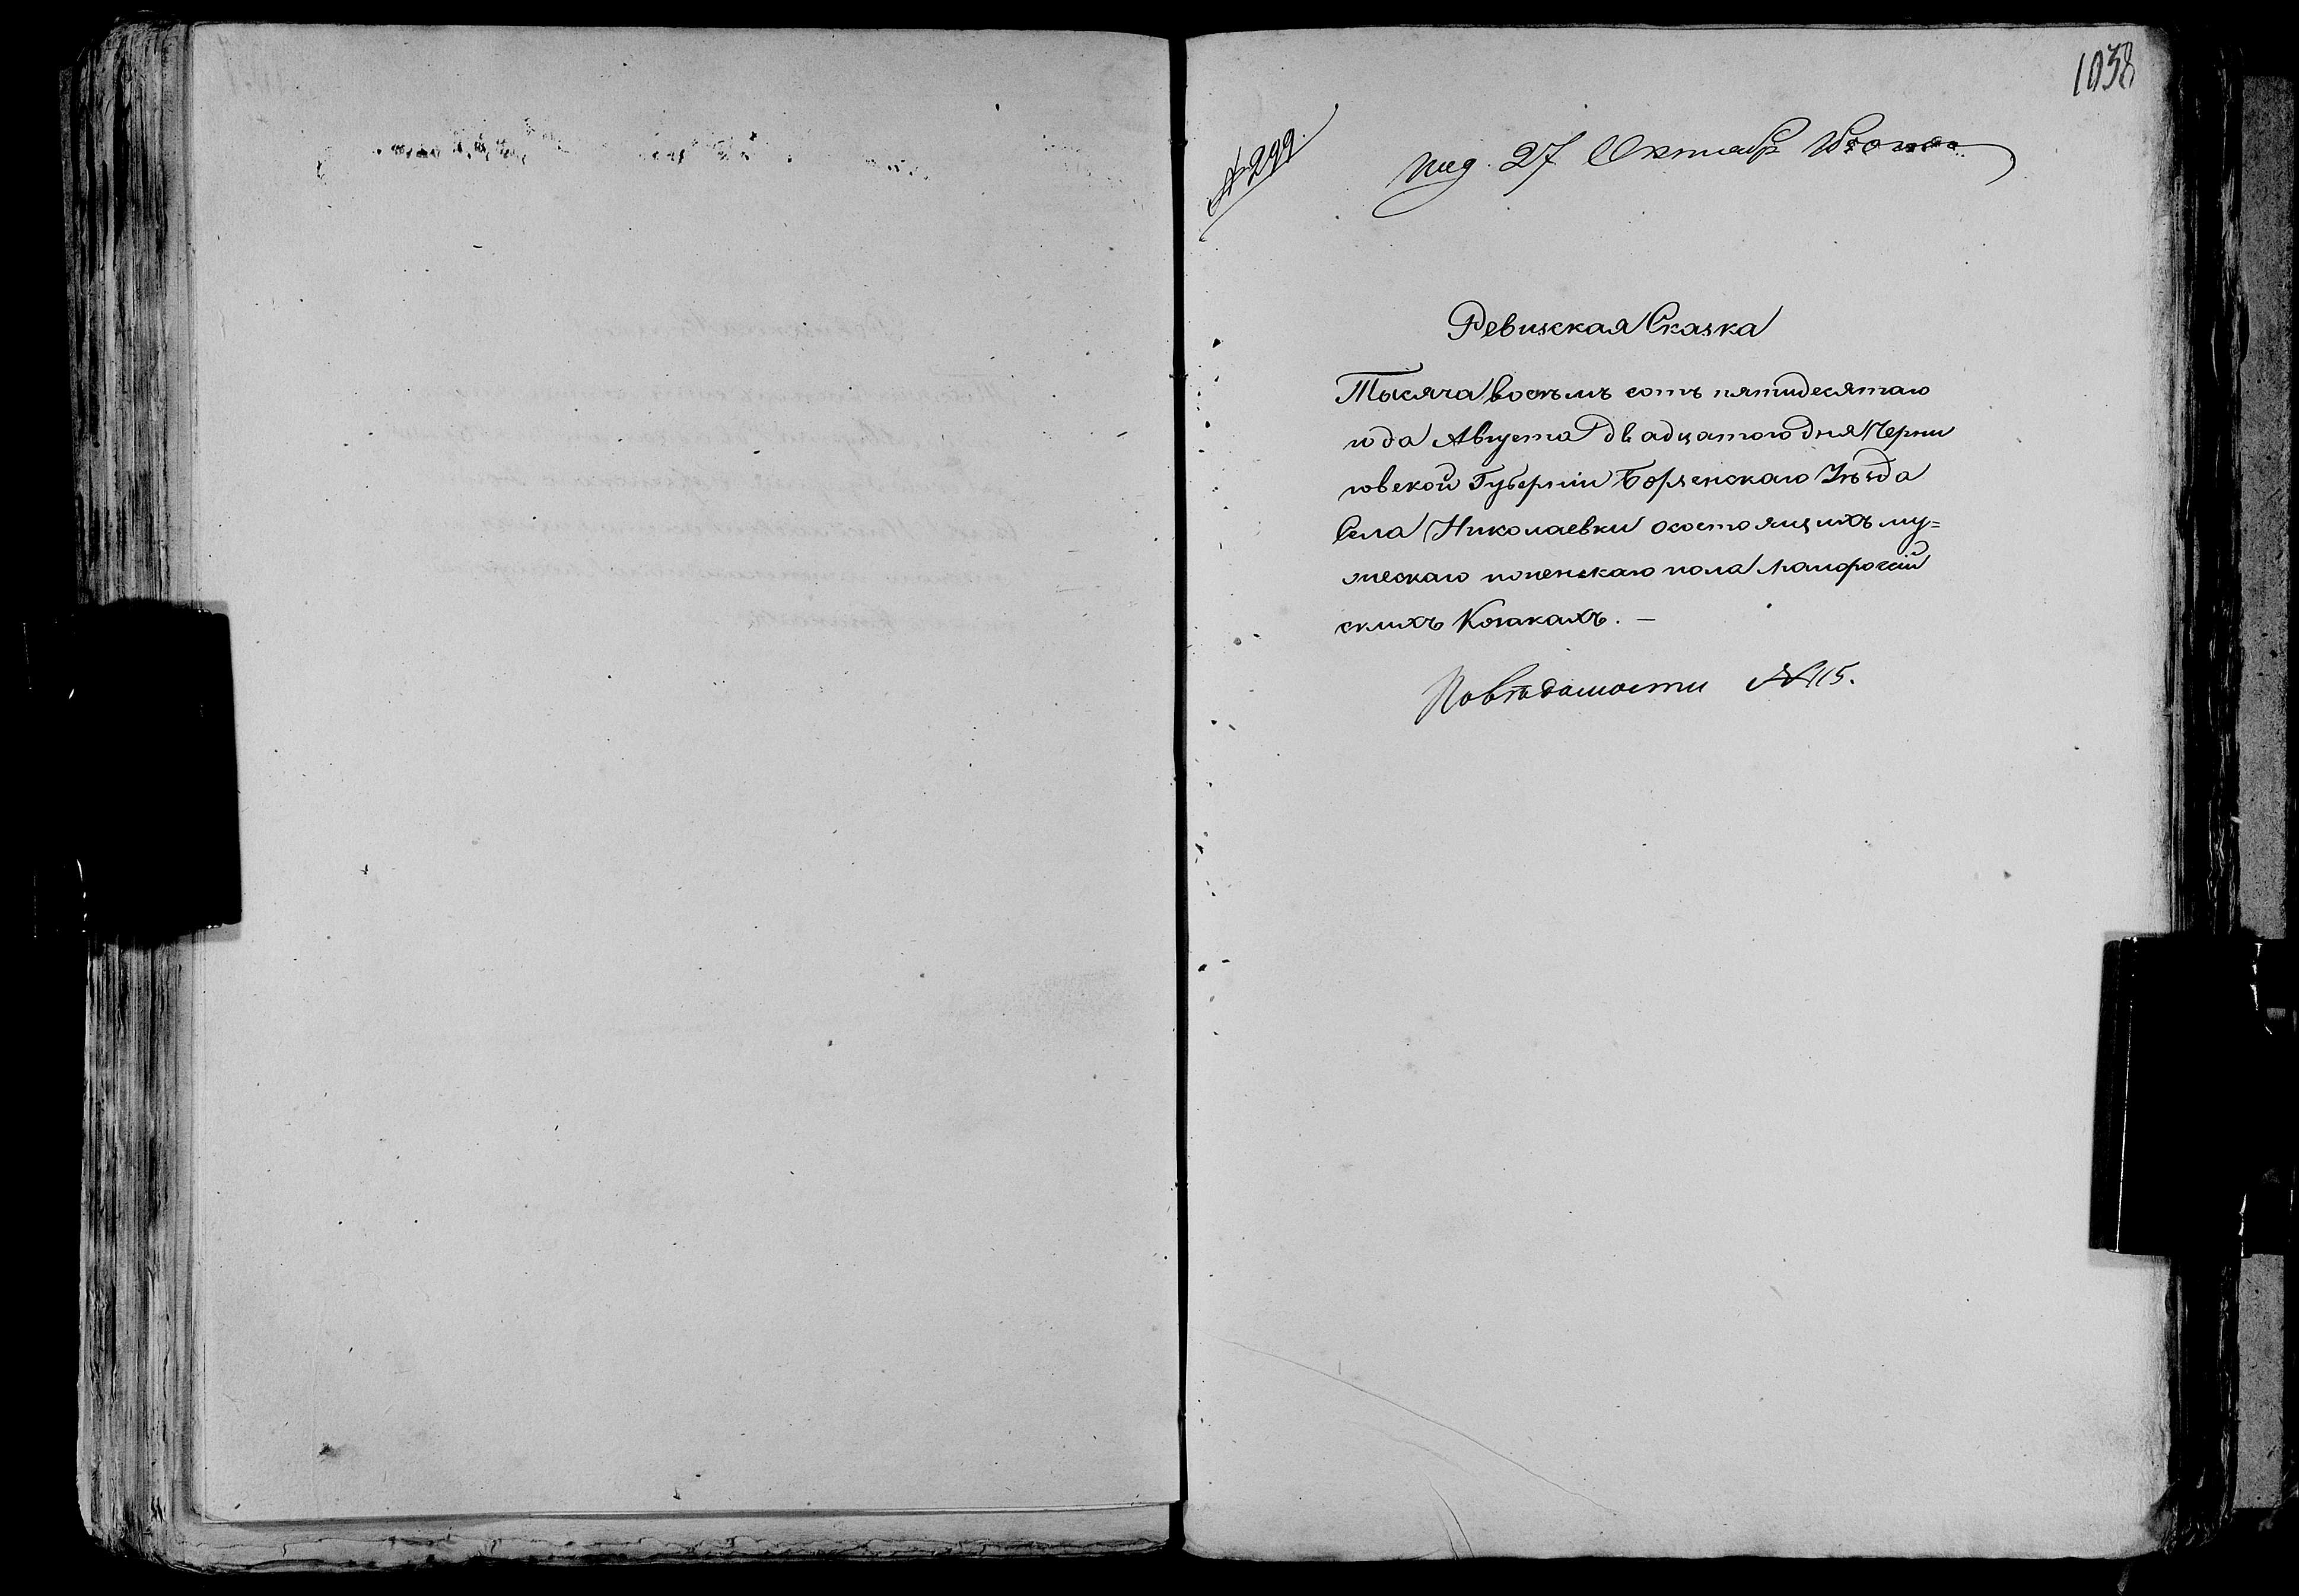 1038
№ 299.
Под. 27 Октября
Ревизская Сказка
Тысяча восемъ сотъ пятидесятаго
года Августа двадцатого дня Черни
говской Губерніи Борзенскаго Уѣзда
Села Николаевки осостоящихъ му=
жескаго иженскаго пола Малороссій
скихъ Козакахъ. —
Повѣдомости № 115.